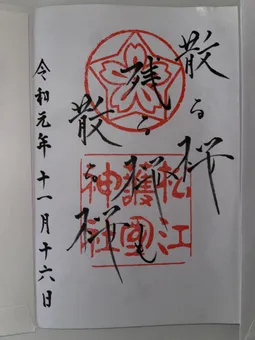 散る桜
残る桜も
散る桜
松江
護國
神社
令和元年十一月十六日